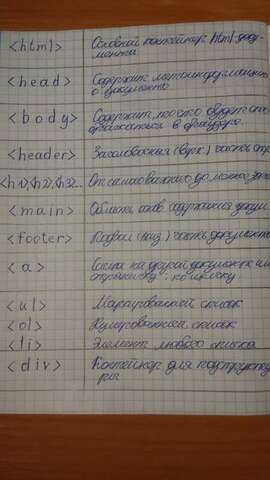 <html> Основной контейнер html доку-
мента
<head> Содержит метаинформацию
о документе
<body> Содержит то что будет ото-
бражаться в браузере.
<header> Заголовочная (верх) часть стр
<h1>,<h2>,<h3>... От самого важного до менее
<main> Область содержания докум
<footer> Подвал (низ) часть документа
<a> Ссылка на другой документ ил
<ul> Маркированный список
<ol> Нумерованный список
<li> Элемент любого списка
<div> Контейнер для подструкту
ры